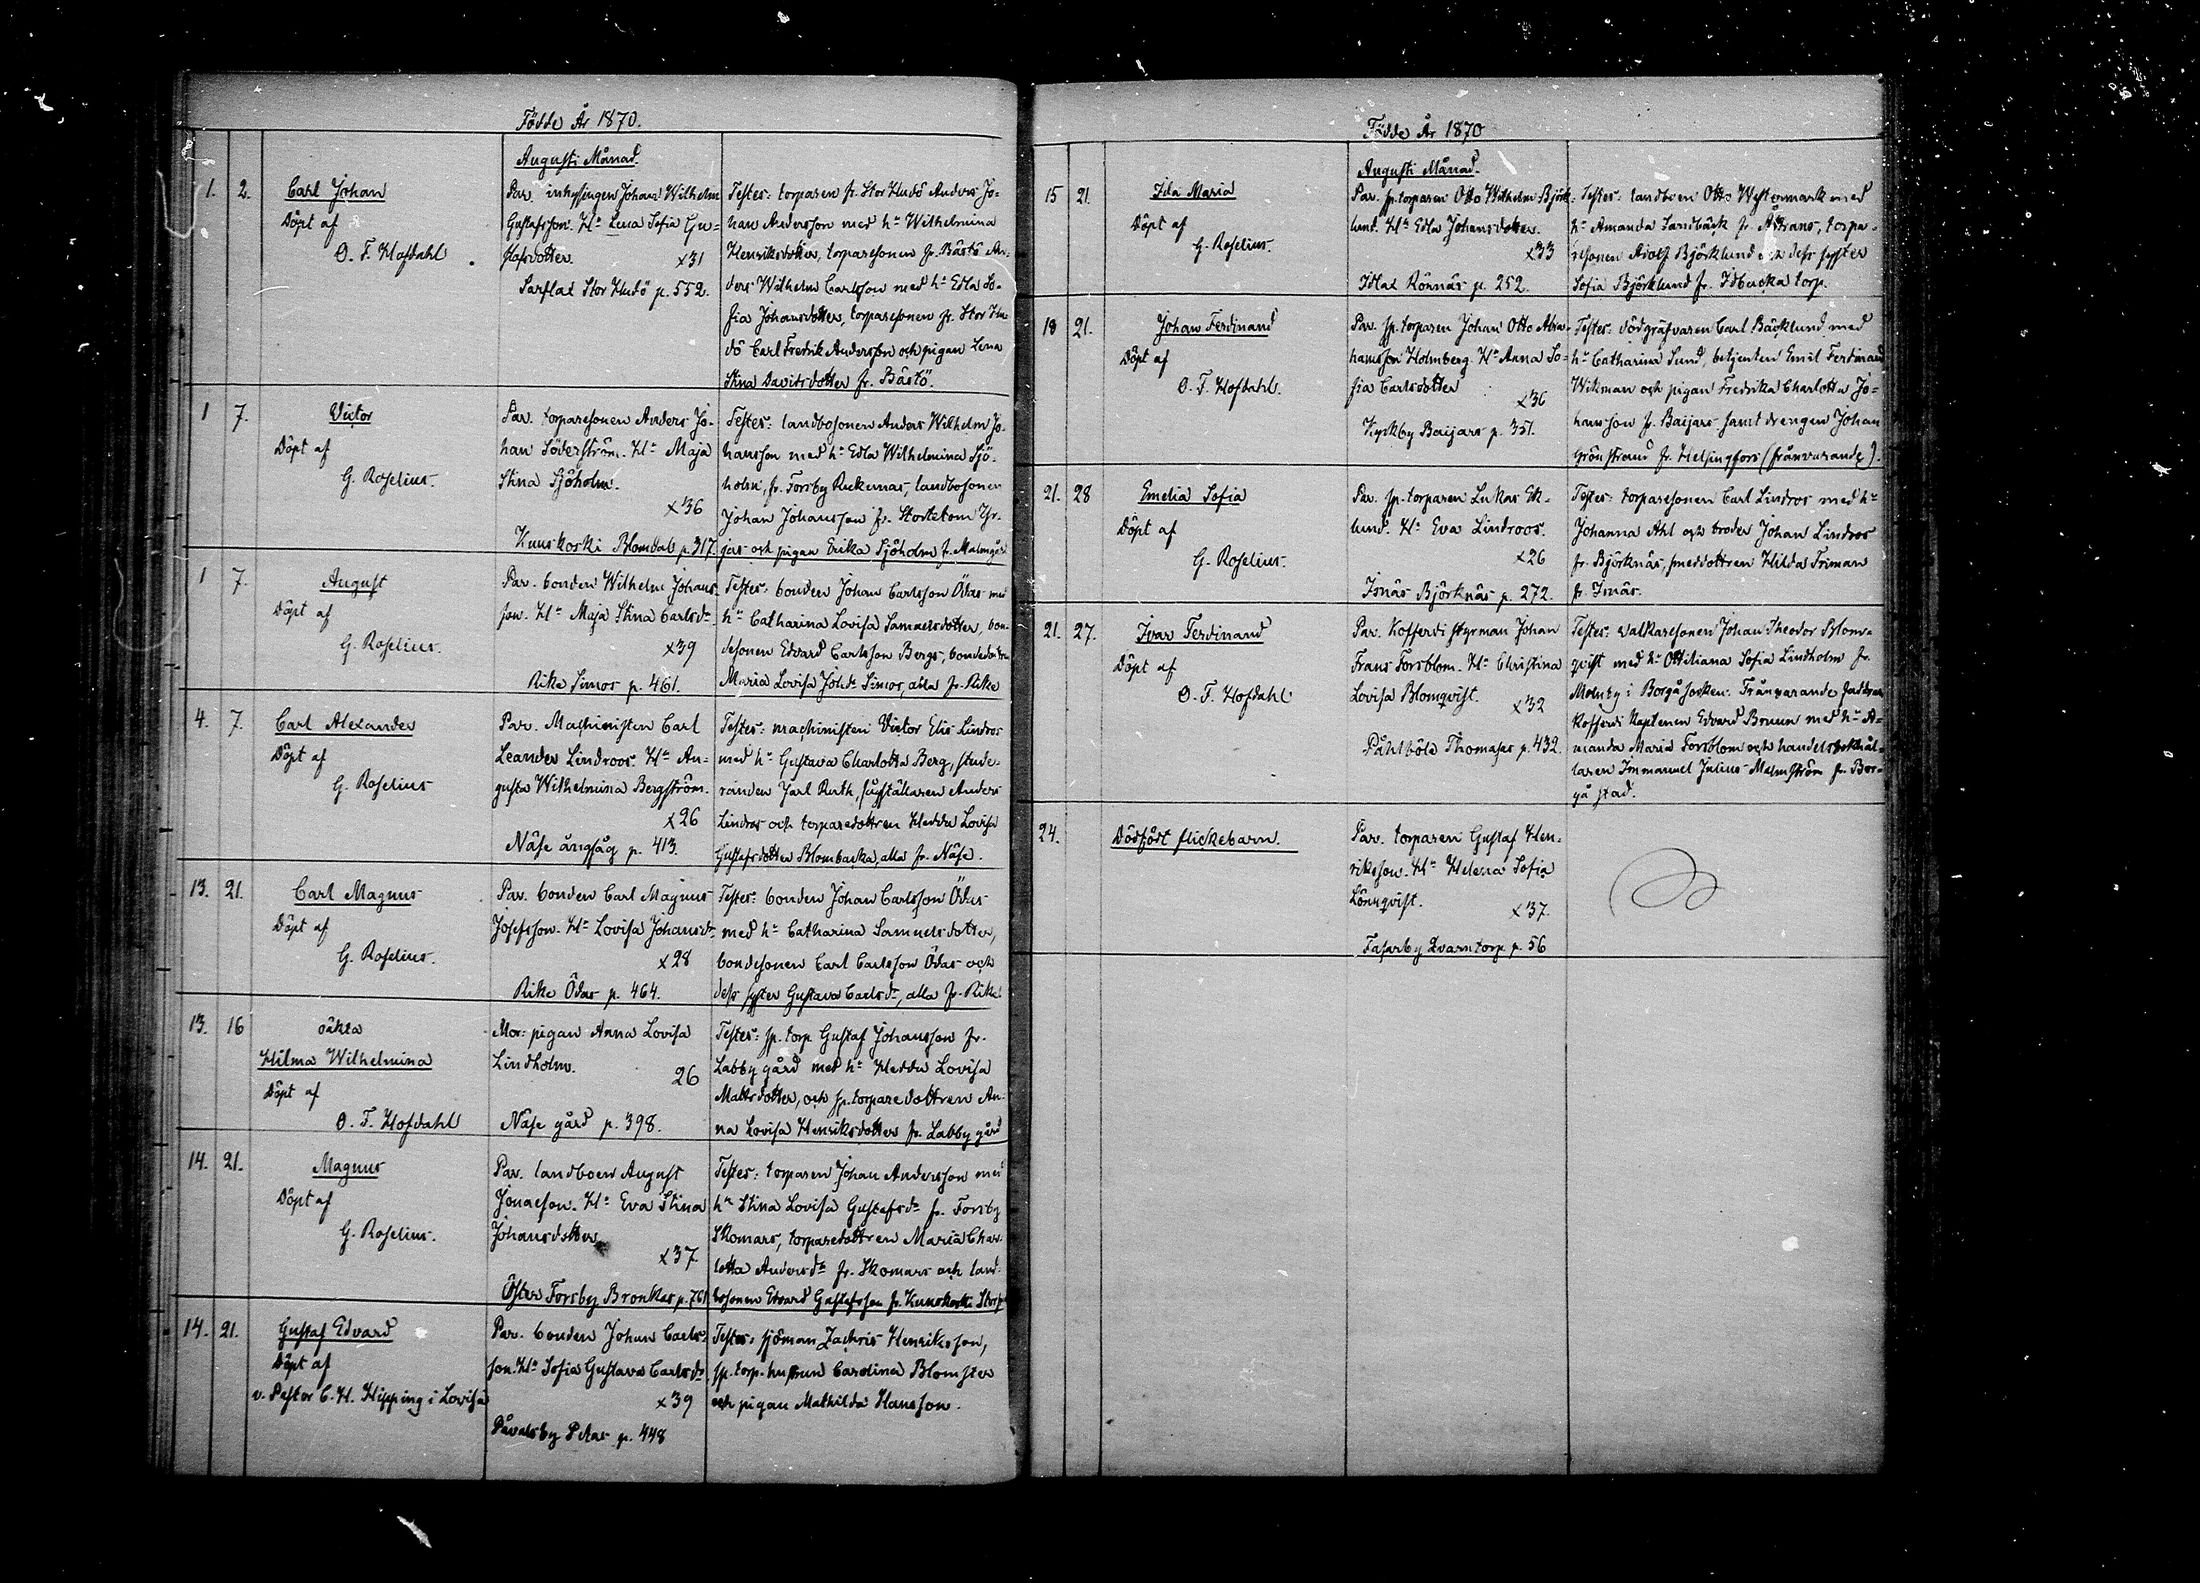 Födde År 1870.
Augusti Månad.
1. 2. Carl Johan
Döpt af
O. F. Hofdahl
Par. inhysingen Johan Wilhelm
Gustafsson. H:u Lena Sofia Gu-
stafsdotter. x31
Sarflax Stor Hudö p. 552.
Testes: torparen fr. Stor Hudö Anders Jo-
han Andersson med h:u Wilhelmina
Henriksdotter, torparesonen fr. Bästö An-
ders Wilhelm Carlsson med h:u Edla So-
fia Johansdotter, torparesonen fr. Stor Hu-
dö Carl Fredrik Andersson och pigan Lena
Stina Davidsdotter fr. Bästö.
1 7. Victor
Döpt af
G. Roselius.
Par. torparesonen Anders Jo-
han Söderström. H:u Maja
Stina Sjöholm.
x36
Kuuskoski Blomdal p. 317
Testes: landbosonen Anders Wilhelm Jo-
hansson med h:u Edla Wilhelmina Sjö-
holm, fr. Forsby landbosonen
Johan Johansson fr.
och pigan Erika Sjöholm fr. Malmgård
1 7. August
Döpt af
G. Roselius.
Par. bonden Wilhelm Johans-
son. H:u Maja Stina Carlsd:r
x39
Rike Simos p. 461.
Testes: bonden Johan Carlsson Ödas med
h:u Catharina Lovisa Samuelsdotter, bon-
desonen Edvard Carlsson Bergs, bondedottren
Maria Lovisa Johd:r Simos, alla fr. Rike
4. 7. Carl Alexander
Döpt af
G. Roselius
Par. Machinisten Carl
Leander Lindroos. H:u Au-
gusta Wilhelmina Bergström.
x26
Näse ångsåg p. 413.
Testes: machinisten Victor Elis Lindroos
med h:u Gustava Charlotta Berg, stude-
randen Jarl Ruth, sågställaren Anders
Lindros och torparedottren Hedda Lovisa
Gustafsdotter Blombacka, alla fr. Näse.
13. 21. Carl Magnus
Döpt af
G. Roselius.
Par. bonden Carl Magnus
Josefsson. H:u Lovisa Johansd:r
x28
Rike Ödas p. 464.
Testes: bonden Johan Carlsson Ödas
med h:u Catharina Samuelsdotter,
bondesonen Carl Carlsson Ödas och
dess syster Gustava Carlsd:r, alla fr. Rike
13. 16 oäkta
Hilma Wilhelmina
Döpt af
O. F. Hofdahl
Mor: pigan Anna Lovisa
Lindholm.
26
Näse gård p. 398.
Testes: sp. torp. Gustaf Johansson fr.
Labby gård med h:u Hedda Lovisa
Mattsdotter, och sp. torparedottren An-
na Lovisa Henriksdotter fr. Labby gård
14. 21. Magnus
Döpt af
G. Roselius.
Par. landboen August
Jonaeson. H:u Eva Stina
Johansdotter
x37
Öster Forsby Bronkas p. 761
Testes: torparen Johan Andersson med
h:u Stina Lovisa Gustafsd:r fr. Forsby
Skomars, torparedottren Maria Char-
lotta Andersd:r fr. Skomars och land-
bosonen Edvard Gustafsson fr. Kuuskoski
14. 21. Gustaf Edvard
Döpt af
v. Pastor C. H. Hipping i Lovisa
Par. bonden Johan Carls-
son. H:u Sofia Gustava Carlsd:r
x39
Påvalsby Petas p. 448
Testes: sjöman Zachris Henriksson,
sp. torp. hustrun Carolina Blomster
och pigan Mathilda Hansson.
Födde År 1870
Augusti Månad.
15 21. Ida Maria
Döpt af
G. Roselius.
Par. sp. torparen Otto Wilhelm Björk-
lund. H:u Edla Johansdotter.
x33
Idlax Rönnäs p. 252.
Testes: landboen Otto Westermark med
h:u Amanda Sandbäck fr. torpa-
resonen Adolf Björklund och dess syster
Sofia Björklund fr. Idbacka torp.
18 21. Johan Ferdinand
Döpt af
O. F. Hofdahl.
Par. sp. torparen Johan Otto Abra-
hamsson Holmberg. H:u Anna So-
fia Carlsdotter
x36
Kyrkby Baijars p. 351.
Testes: dödgräfvaren Carl Bäcklund med
h:u Catharina Sund, betjenten Emil Ferdinand
Wikman och pigan Fredrika Charlotta Jo-
hansson fr. Baijars samt drengen Johan
Grönstrand fr. Helsingfors (frånvarande).
21. 28 Emelia Sofia
Döpt af
G. Roselius.
Par. sp. torparen Lukas Ek-
lund. H:u Eva Lindroos.
x26
Isnäs Björknäs p. 272.
Testes: torparesonen Carl Lindros med h:u
Johanna Ahl och broder Johan Lindros
fr. Björknäs, smeddottren Hilda Friman
fr. Isnäs.
21. 27. Ivar Ferdinand
Döpt af
O. F. Hofdahl
Par. Kofferdi styrman Johan
Frans Forsblom. H:u Christina
Lovisa Blomqvist. x32
Påhlböle Thomasas p. 432.
Testes: valkaresonen Johan Theodor Blom-
qvist med h:u Ottiliana Sofia Lindholm fr.
Molnby i Borgå socken. Frånvarande faddrar
Kofferdi Kaptenen Edvard Bruun med h:u A-
manda Maria Forsblom och handelsbokhål-
laren Immanuel Julius Malmström fr. Bor-
gå stad.
24. Dödfödt flickebarn.
Par. torparen Gustaf Hen-
riksson. H:u Helena Sofia
Lönnqvist.
x37.
Fasarby Qvarntorp p. 56